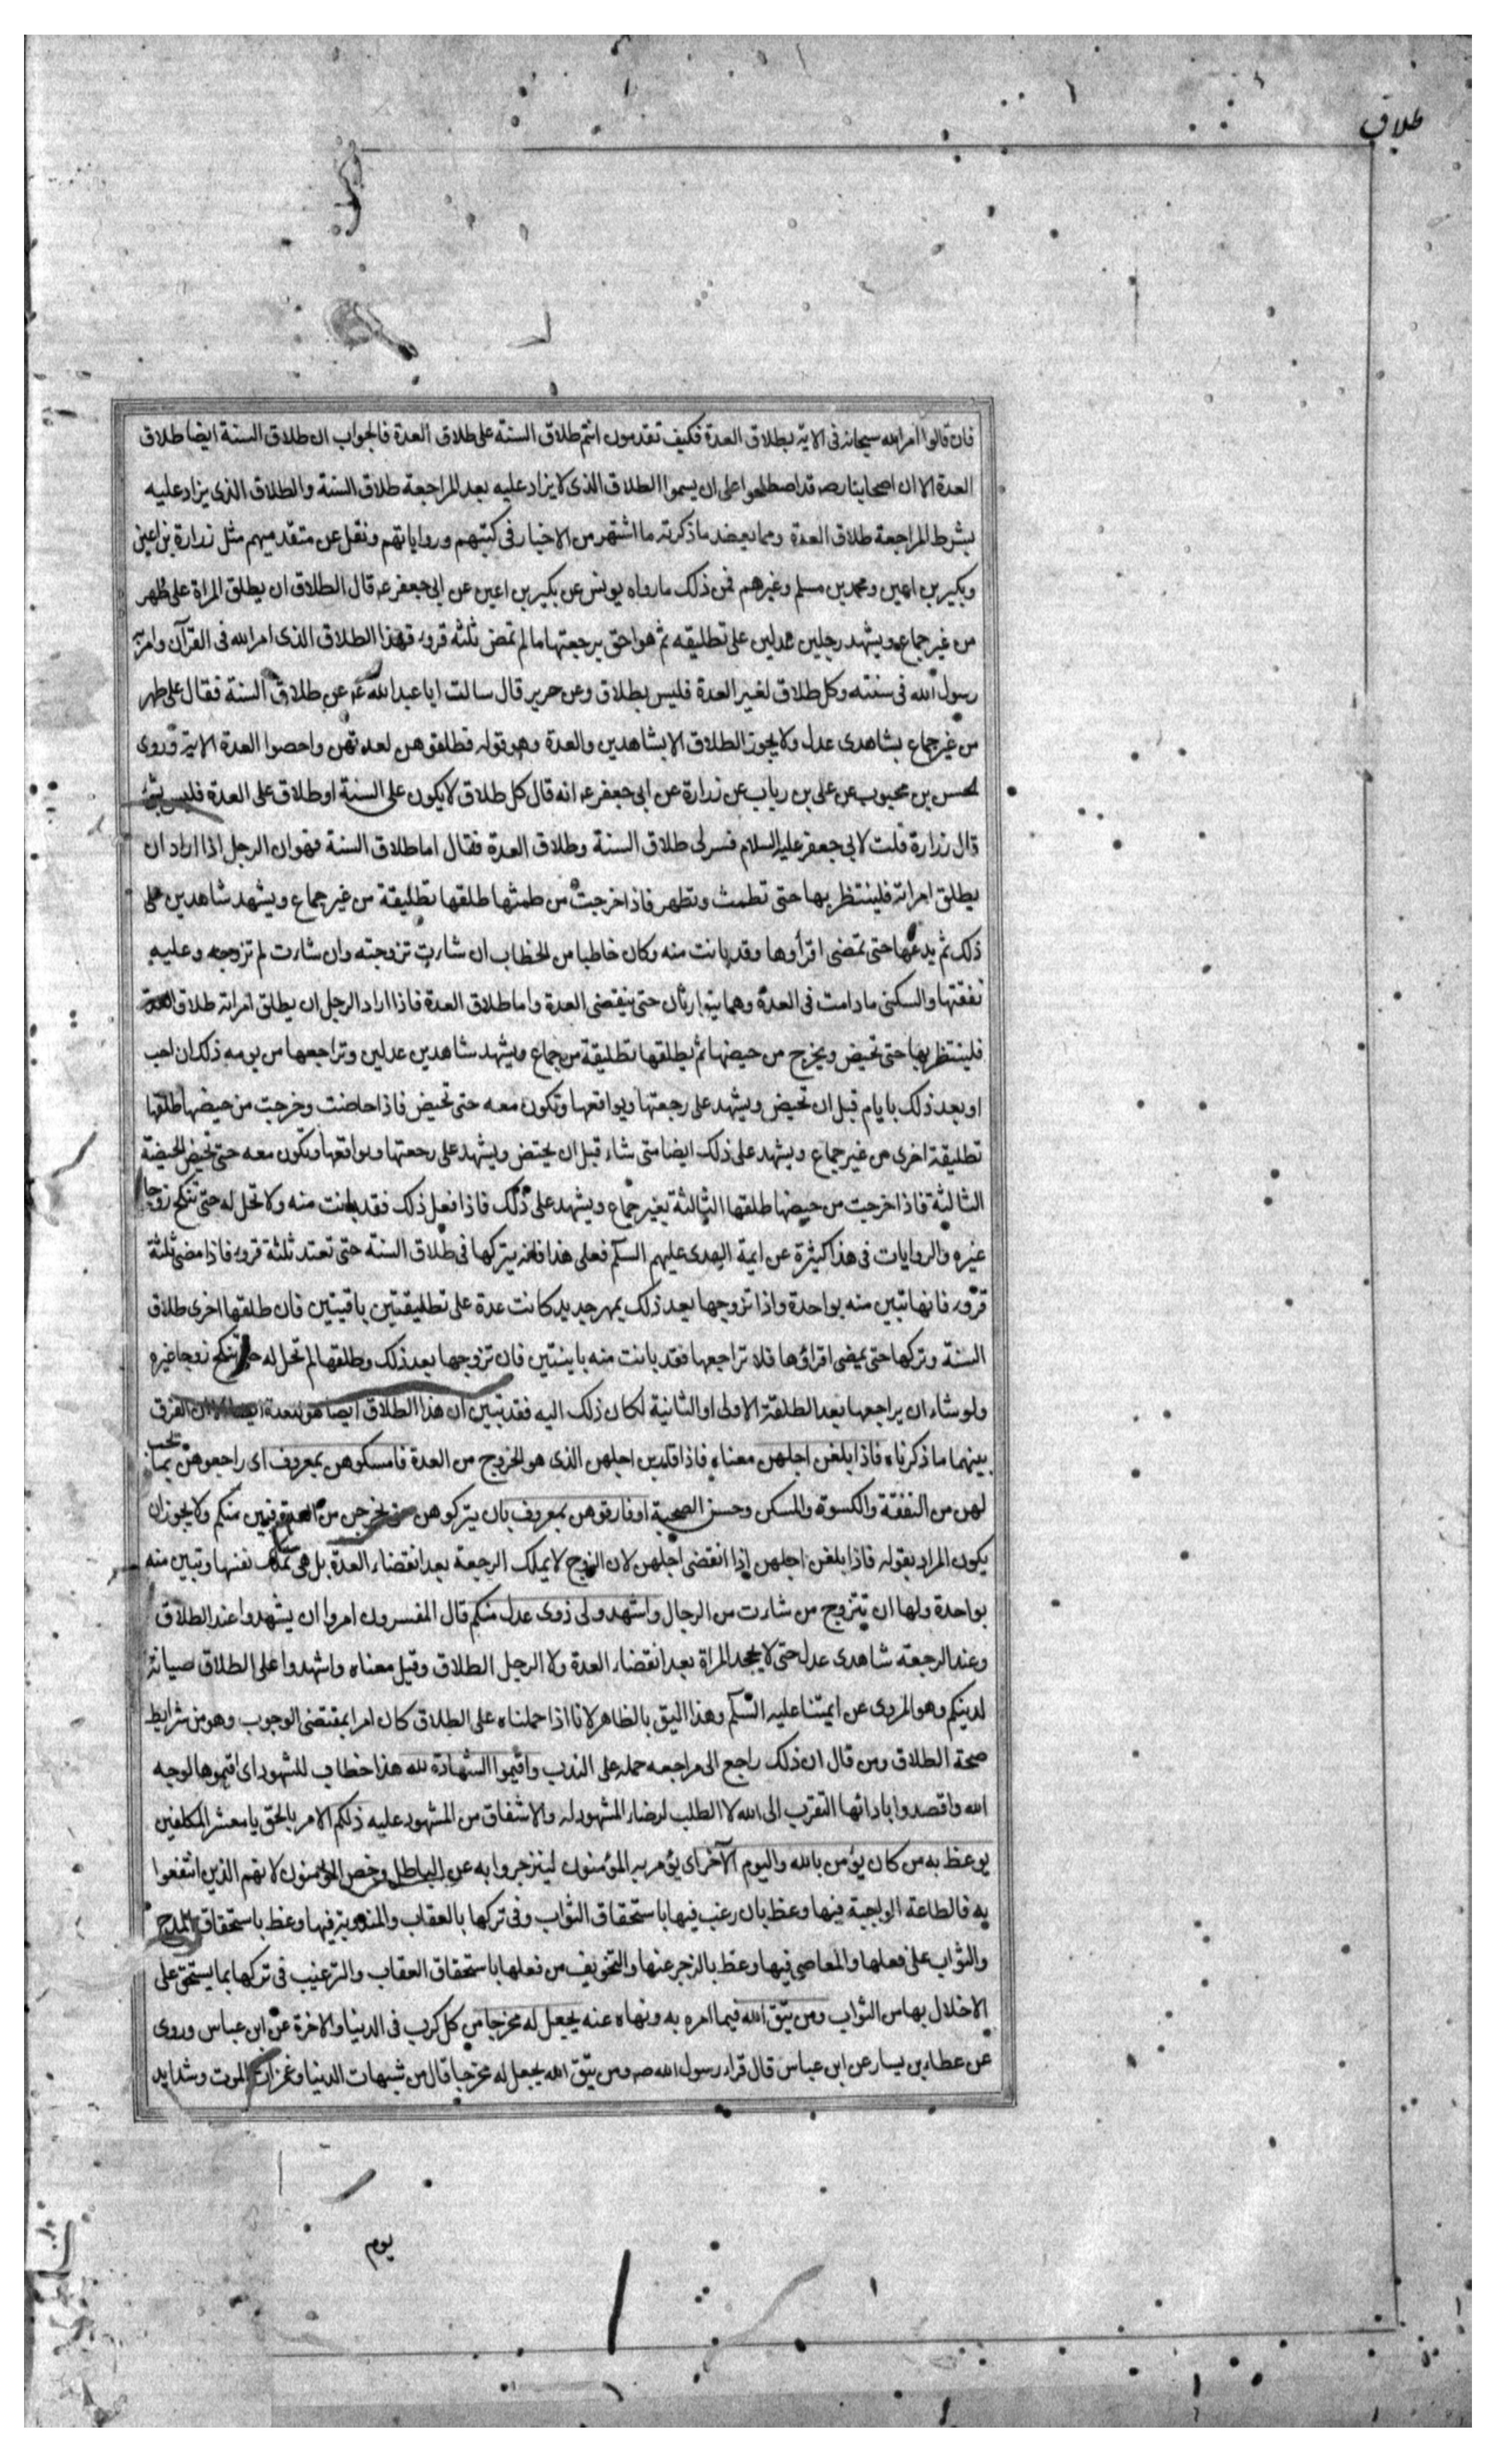 طلاق
فان قالوا امر الله سبحانه فى الاية بطلاق العدة فكيف تقدمون انتم طلاق السنة على طلاق العدة فالجواب ان طلاق السنة ايضا طلاق
العدة الا ان اصحابنا رض قد اصطلحوا على ان يسموا الطلاق الذى لا يزاد عليه بعد المراجعة طلاق السنة والطلاق الذى يزاد عليه
بشرط المراجعة طلاق العدة ومما يعضد ما ذكرته ما اشتهر من الاخبار فى كتبهم ورواياتهم ونقل عن متقدميهم مثل زرارة بن اعين
وبكير بن اعين ومحمد بن مسلم وغيرهم فمن ذلك ما رواه يونس عن بكير بن اعين عن ابى جعفر ع قال الطلاق ان يطلق المراة على طهر
من غير جماع ويشهد رجلين عدلين على تطليقه ثم هو احق برجعتها ما لم تمض ثلثه قروء فهذا الطلاق الذى امر الله فى القرآن وامر به
رسول الله فى سنته وكل طلاق لغير العدة فليس بطلاق وعن حرير قال سالت ابا عبد الله ع عن طلاق السنة فقال على طهر
من غير جماع بشاهدى عدل ولا يجوز الطلاق الا بشاهدين والعدة وهو قوله فطلقوهن لعدتهن واحصوا العدة الاية وروى
لحسن بن محبوب عن على بن رياب عن زرارة عن ابى جعفر ع انه قال كل طلاق لا يكون على السنة او طلاق على العدة فليس بشئ
قال زرارة قلت لابى جعفر عليه السلام فسر لى طلاق السنة وطلاق العدة فقال اما طلاق السنة فهو ان الرجل اذا اراد ان
يطلق امراته فلينتظر بها حتى تطمث وتطهر فاذا خرجت من طمثها طلقها تطليقة من غير جماع ويشهد شاهدين على
ذلك ثم يدعها حتى تمضى اقرأوها وقد بانت منه وكان خاطبا من الخطاب ان شارت تزوجته وان شارت لم تزوجه وعليه
نفقتها والسكنى ما دامت فى العدة وهما يتوارثان حتى ينقضى العدة واما طلاق العدة فاذا اراد الرجل ان يطلق امراته طلاق العدة
فلينتظر بها حتى تحيض ويخرج من حيضها ثم يطلقها تطليقة من جماع ويشهد شاهدين عدلين وتراجعها من يومه ذلك ان احب
او بعد ذلك بايام قبل ان تحيض ويشهد على رجعتها ويواقعها وتكون معه حتى تحيض فاذا حاضت وخرجت من حيضها طلقها
تطليقة اخرى من غير جماع ويشهد على ذلك ايضا متى شاء قبل ان يحتض ويشهد على رجعتها ويواقعها وتكون معه حتى تحيض الحيضة
الثالثة فاذا خرجت من حيضها طلقها الثالثة بغير جماع ويشهد على ذلك فاذا فعل ذلك فقد بانت منه ولا تحل له حتى تنكح زوجا
غيره والروايات فى هذا كثيرة عن ايمة الهدى عليهم السلم فعلى هذا فانه يتركها فى طلاق السنة حتى تعتد ثلثة قروء فاذا مضى ثلثة
قروء فانها تبين منه بواحدة واذا تزوجها بعد ذلك بمهر جديد كانت عدة على تطليقتين باقيتين فان طلقها اخرى طلاق
السنة وتركها حتى يمضى اقراؤها فلا تراجعها فقد بانت منه باينتين فان تزوجها بعد ذلك وطلقها لم تحل له حتى تنكح زوجا غيره
ولو شاء ان يراجعها بعد الطلقة الاولى او الثانية لكان ذلك اليه فقد تبين ان هذا الطلاق ايضا هو للعدة ايضا الا ان الفرق
بينهما ما ذكرناه فاذا بلغن اجلهن معناه فاذا قاربن اجلهن الذى هو الخروج من العدة فامسكوهن بمعروف اى راجعوهن بما يجب
لهن من النفقة والكسوة والمسكن وحسن الصحبة او فارقوهن بمعروف بان يتركوهن حتى يخرجن من العدة فتبين منكم ولا يجوز ان
يكون المراد بقوله فاذا بلغن اجلهن اذا انقضى اجلهن لان الزوج لا يملك الرجعة بعد انقضاء العدة بل هى تملك نفسها وتبين منه
بواحدة ولها ان تتزوج من شارت من الرجال واشهدو لى ذوى عدل منكم قال المفسرون امروا ان يشهدوا عند الطلاق
وعند الرجعة شاهدى عدل حتى لا يجحد المراة بعد انقضاء العدة ولا الرجل الطلاق وقيل معناه واشهدوا على الطلاق صيانة
لدينكم وهو المروى عن ايمتنا عليه السلم وهذا اليق بالظاهر لانا اذا حملناه على الطلاق كان امرا بمقتضى الوجوب وهو من شرايط
صحة الطلاق ومن قال ان ذلك راجع الى مراجعه حمله على الندب واقيموا الشهادة لله هذا خطاب للشهود اى اقيموها لوجه
الله واقصدوا باداتها التقرب الى الله لا الطلب لرضاء المشهود له والاشفاق من المشهود عليه ذلكم الامر بالحق يا معشر المكلفين
يوعظ به من كان يؤمن بالله واليوم الآخر اى يؤمر به المؤمنون لينزجروا به عن الباطل وخص المؤمنون لانهم الذين انتفعوا
به فالطاعة الواجبة فيها وعظ بان رغب فيها باستحقاق الثواب وفى تركها بالعقاب والمندوبة فيها وعظ باستحقاق المدح
والثواب على فعلها والمعاصى فيها وعظ بالزجر عنها والتخويف من فعلها باستحقاق العقاب والترغيب فى تركها بما يستحق على
الاخلال بها من الثواب ومن يتق الله فيما امره به ونهاه عنه يجعل له مخرجا من كل كرب فى الدنيا والاخرة عن ابن عباس وروى
عن عطاء بن يسار عن ابن عباس قال قراء رسول الله ص ومن يتق الله يجعل له مخرجا قال من شبهات الدنيا وغمرات الموت وشدايد
يوم